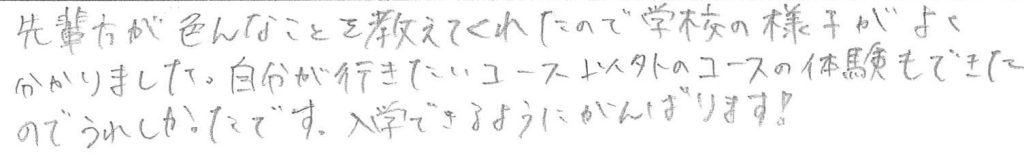 先輩方が色んなことを教えてくれたので学校の様子がよく
分かりました。自分が行きたいコース以外のコースの体験もできた
のでうれしかったです。入学できるようにがんばります!